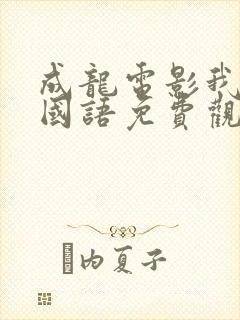 成龍電影我
國語免費觀
内夏子